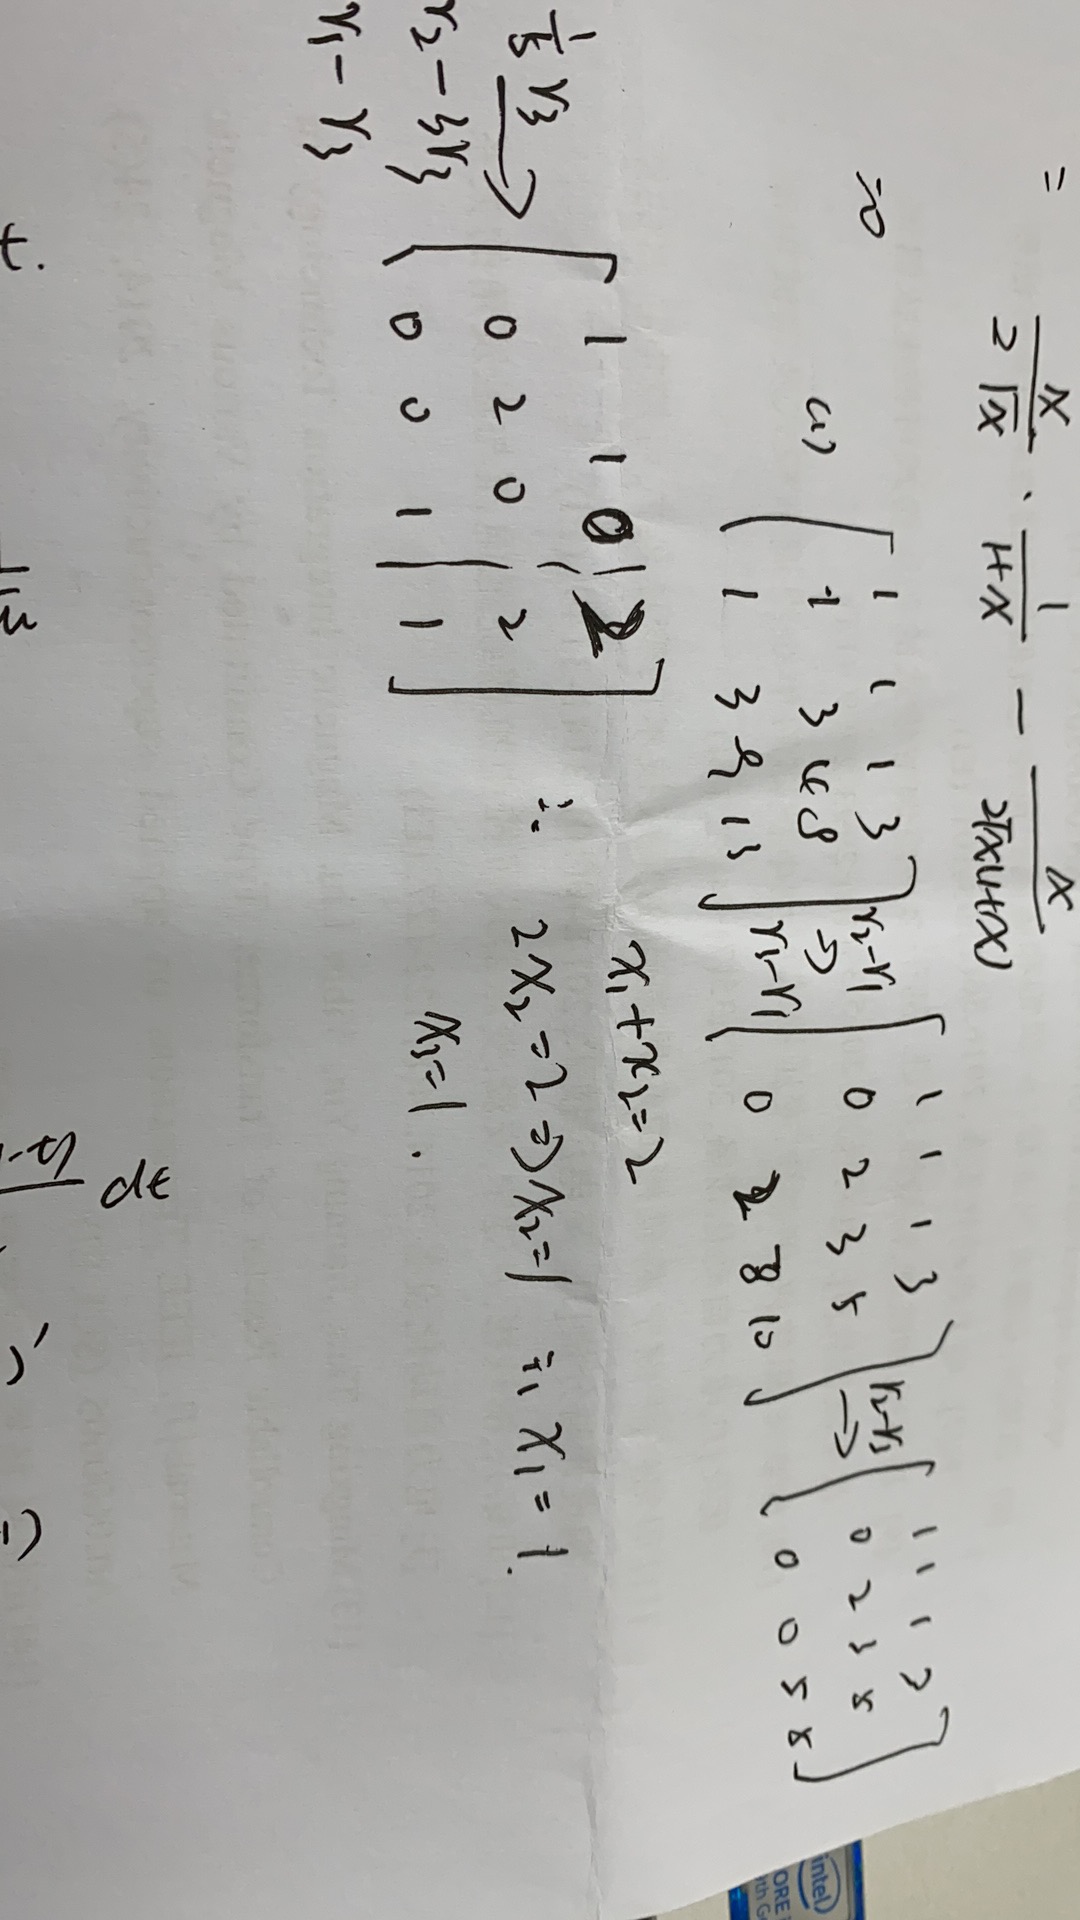 = x/(2√x) · 1/(1+x) − x/(2√x(1+x))
=0
(1) [1 1 1 3; 1 3 4 8; 1 3 9 13] r2-r1 → r3-r1 [1 1 1 3; 0 2 3 5; 0 2 8 10] r3-r2 → [1 1 1 3; 0 2 3 5; 0 0 5 5]
1/5 r3 →
r2 - 3r3
r1 - r3
[1 1 0 | 2; 0 2 0 | 2; 0 0 1 | 1]
∴ x1+x2=2
2x2=2 => x2=1 ∴ x1=1.
x3=1.
t.
dt
intel